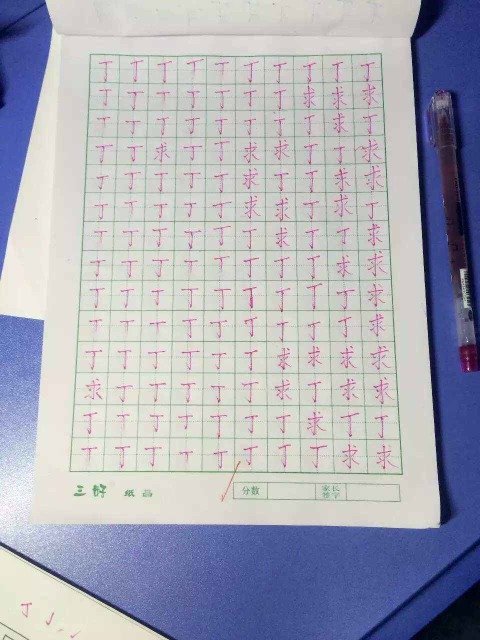 丁丁丁丁丁丁丁丁丁丁
丁丁丁丁丁丁丁求求求
丁丁丁丁丁丁丁丁求丁
丁丁求丁丁求求丁丁求
丁丁丁丁丁求丁丁求求
丁丁丁丁丁求求丁求丁
丁丁丁丁丁丁求丁丁求
丁丁丁丁丁丁丁丁求求
丁丁丁丁丁丁丁丁丁求
丁丁丁丁丁丁丁丁丁求
丁丁丁丁丁丁求求求求
求丁丁丁丁丁求丁求求
丁丁丁丁丁丁丁求丁丁
丁丁丁丁丁丁丁丁求求
三好 纸品
分数 家长签字